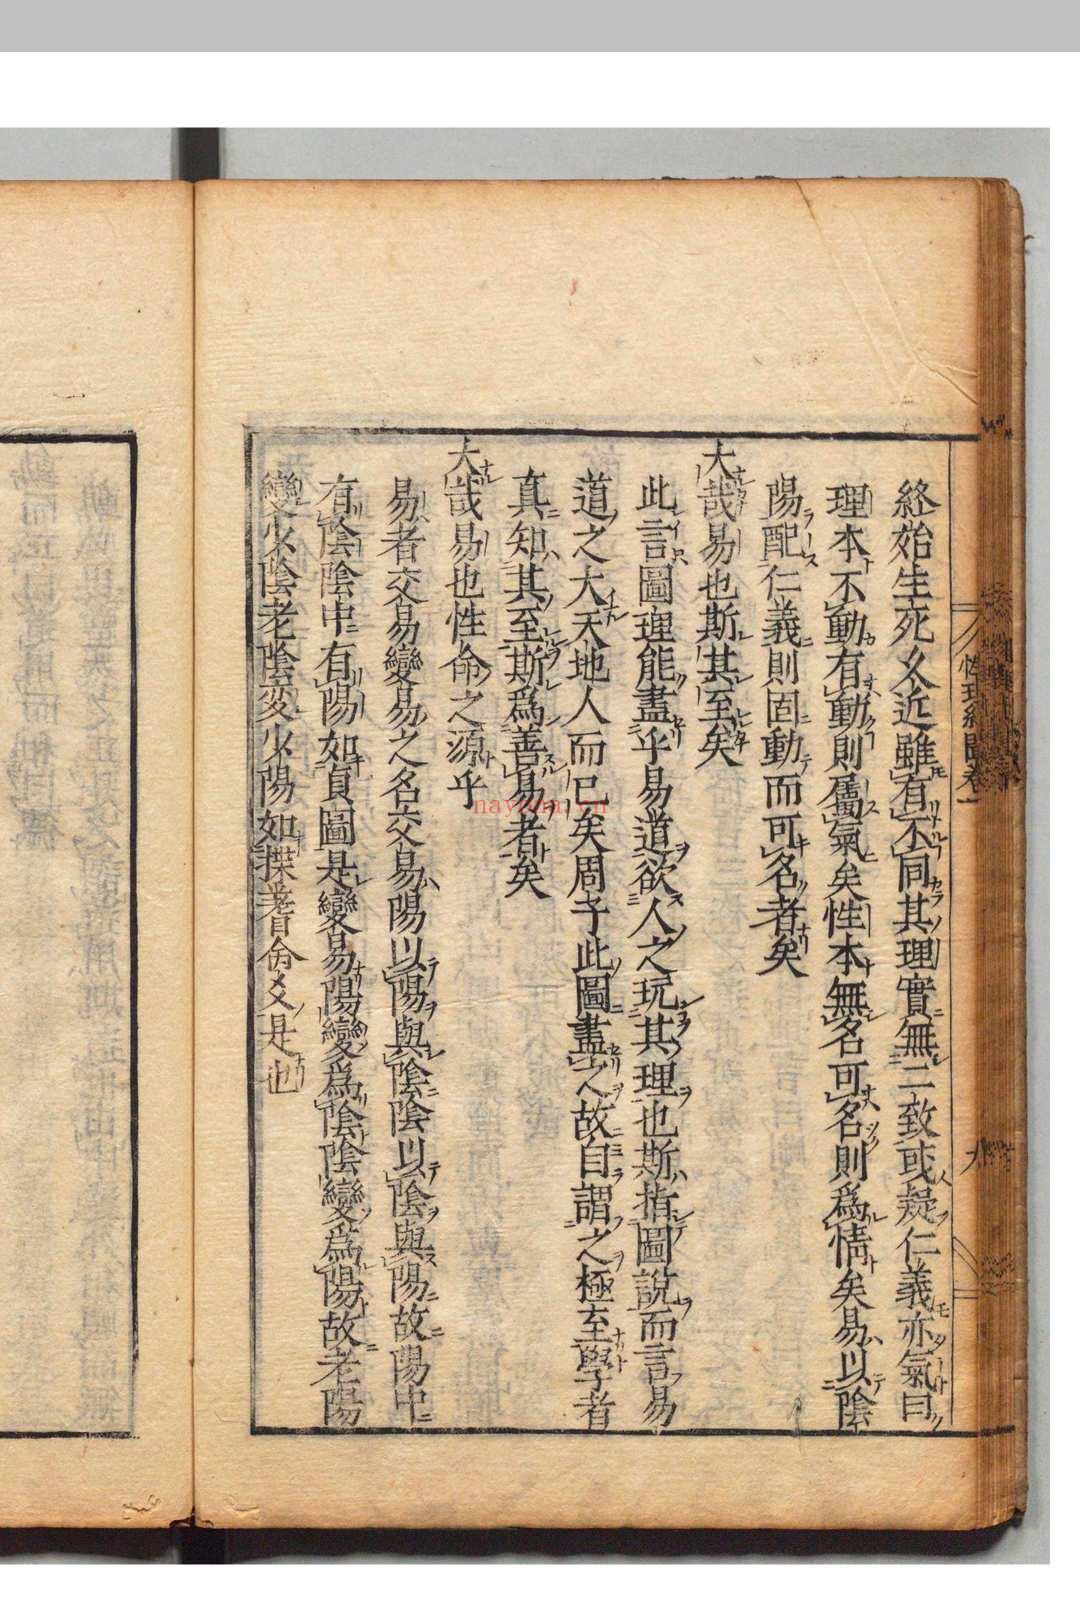 終始生死久近雖有不同其理實無二致或疑仁義亦氣曰
理本不動有動則屬氣矣性本無名可名則爲情矣易以陰
陽配仁義則固動而可名者矣
大哉易也斯其至矣
此言圖理能盡乎易道欲人之玩其理也斯指圖說而言易
道之大天地人而已矣周子此圖盡之故自謂之極至學者
真知其至斯爲善易者矣
大哉易也性命之源乎
易者交易變易之名交易陽以陽與陰陰以陰與陽故陽中
有陰陰中有陽如眞圖是變易陽變爲陰陰變爲陽故老陽
變少陰老陰変少陽如揲蓍命爻是也
nayona.cn